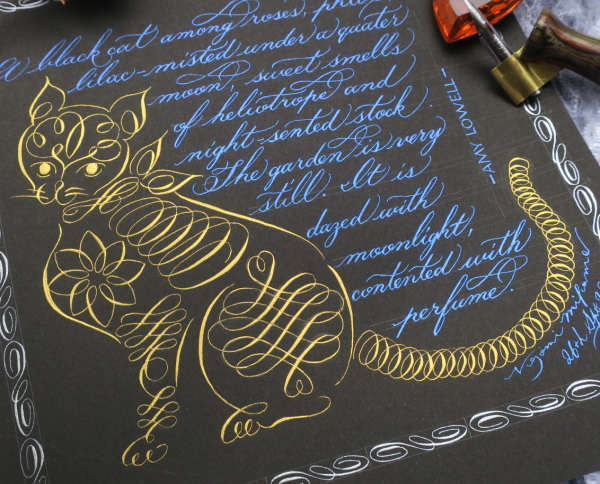 A black cat among roses,
lilac-misted under a quater
moon, sweet smells
of heliotrope and
night-sented stock.
The garden is very
still. It is
dazed with
moonlight,
contented with
perfume.
—AMY LOWELL—